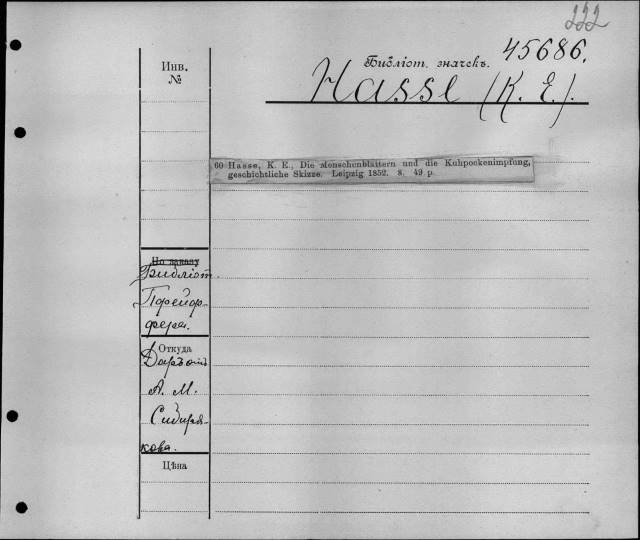 222
45686.
Инв.
№
Библіот. значекъ.
Hasse (K. E.).
60 Hasse, K. E., Die Menschenblattern und die Kuhpockenimpfung,
geschichtliche Skizze. Leipzig 1852. 8. 49 p.
По заказу
Библіот.
Пфейф-
фера.
Откуда
Даръ отъ
А. М.
Сибиря-
кова.
Цѣна